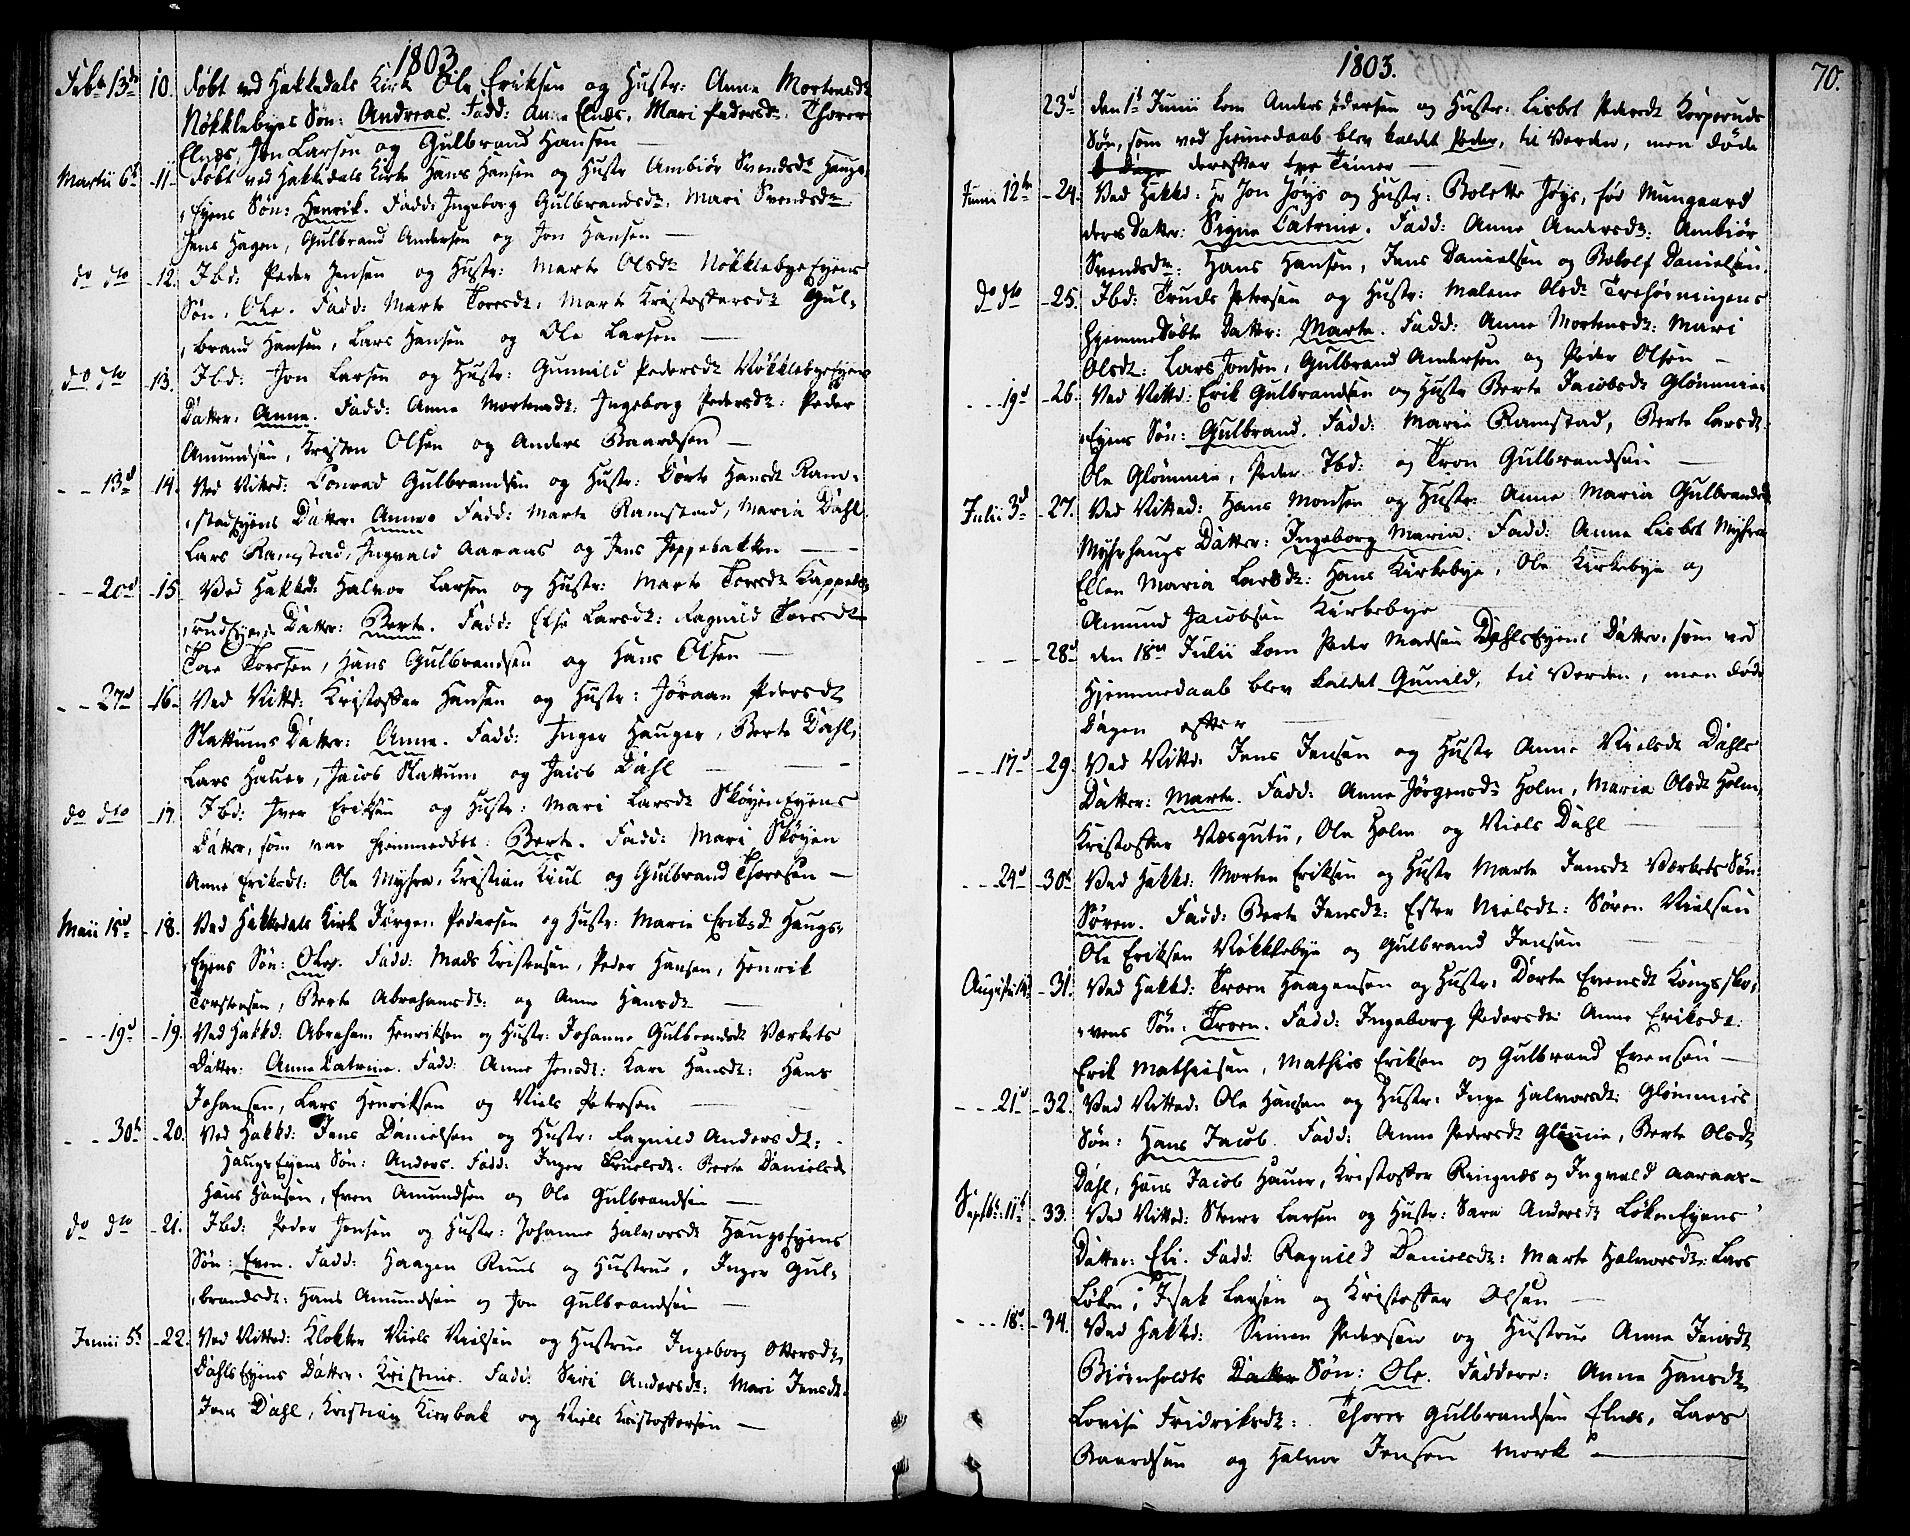 1803
Febr 13de 10. døbt ved Hakkedals Kirk Ole Eriksen og Hustr: Anne Mortensdt
Nökklebyes Søn: Andreas. Fadd: Anne Elnæs, Mari Pedersdr. Thorer
Elnæs, Jon Larsen og Gulbrand Hansen —
Martii 6te 11. døbt ved Hakkedals Kirke Hans Hansen og Hustr Ambiør Svendsdr Haugs-
Eyens Søn: Henrik. Fadd: Ingeborg Gulbrandsdr. Mari Svendsdr
Jens Hagen, Gulbrand Andersen og Jon Hansen —
do dto 12. Ibd: Peder Jensen og Hustr: Marte Olsdr NökklebyeEyens
Søn: Ole. Fadd: Marte Toresdt, Marte Kristoffersdt Gul-
brand Hansen, Lars Hansen og Ole Larsen —
do dto 13. Ibd: Jon Larsen og Hustr: Gunnild Pedersdt NökklebyeEyens
Datter: Anne. Fadd: Anne Mortensdt: Ingeborg Pedersdt: Peder
Amundsen, Kristen Olsen og Anders Baardsen —
- - 13d 14. Ved Nitted: Conrad Gulbrandsen og Hustr: Dorte Hansdt Ram-
stadEyens Datter: Anne. Fadd: Marte Ramstad, Maria Dahl
Lars Ramstad, Ingvald Aaraas og Jens Jeppebakken —
- - 20d 15 Ved Hakked: Halvor Larsen og Hustr: Marte Toresdt Kappels-
rudEyens Datter: Berte. Fadd: Else Larsdt: Ragnild Toresdt
Tore Toresen, Hans Gulbrandsen og Hans Olsen —
- - 27d 16. Ved Nittd: Kristoffer Hansen og Hustr: Jöraan Pedersdt
Slattums Datter: Anne. Fadd: Inger Hauger, Berte Dahl,
Lars Hauer, Jacob Slattum og Jacob Dahl —
do dto 17. Ibd: Iver Eriksen og Hustr: Mari Larsdt SköyenEyens
Datter, som var hjemmedöbt: Berte. Fadd: Mari Sköyen
Anne Eriksdt: Ole Myhre, Kristian Kiul og Gulbrand Thoresen —
Maii 15d 18. Ved Hakkedals Kirk Jörgen Pedersen og Hustr: Marie Eriksdt Haugs-
Eyens Søn: Ole. Fadd: Mads Kristensen, Peder Hansen, Henrik
Torstensen, Berte Abrahamsdt: og Anne Hansdt —
- - 19d 19. Ved Hakkd: Abraham Henriksen og Hustr: Johanne Gulbrandsdt Værkets
Datter: Anne Catrine. Fadd: Anne Jensdt: Kari Hansdt: Hans
Johansen, Lars Henriksen og Niels Petersen —
- - 30te 20. Ved Hakkd: Jens Danielsen og Hustr: Ragnild Andersdt:
HaugsEyens Søn: Anders. Fadd: Inger Truelsdt: Berte Danielsdt
Hans Hansen, Even Amundsen og Ole Gulbrandsen —
do dto 21. Ibd: Peder Jensen og Hustr: Johanne Halvorsdt HaugsEyens
Søn: Even. Fadd: Haagen Ruus og Hustrue, Inger Gul-
brandsdt: Hans Amundsen og Jon Gulbrandsen —
Junii 5te 22. Ved Nitted: Klokker Niels Nielsen og Hustrue Ingeborg Ottersdt
DahlsEyens Datter: Kristine. Fadd: Siri Andersdt: Mari Jensdt
Jens Dahl, Kristian Kirebak og Niels Kristoffersen —
1803.
70.
23d den 1te Junii kom Anders Pedersen og Hustr: Lisbet Pedersdt Korperuds
Søn, som ved hiemedaab blev kaldet Peder, til Verden, men döde
derefter tre Timer —
Junii 12te 24. Ved Hakkd: Hr Jon Jöys og Hustr: Bolette Jöys, föd Mungaard
deres Datter: Signe Catrine. Fadd: Anne Andersdt: Ambiör
Svendsdt: Hans Hansen, Jens Danielsen og Botolf Danielsen.
do dto 25. Ibd: Truls Petersen og Hustr: Malene Olsdt Trehörningens
hjemmedöbte Datter: Marte. Fadd: Anne Mortensdt: Mari
Olsdt: Lars Jonsen, Gulbrand Andersen og Peder Olsen —
- - 19d 26. Ved Nittd: Erik Gulbrandsen og Hustr Berte Jacobsdt Glömmie-
Eyens Søn: Gulbrand. Fadd: Marie Ramstad, Berte Larsdt:
Ole Glömmie, Peder Ibd: og Tron Gulbrandsen —
Julii 3d 27. Ved Nitted: Hans Monsen og Hustr: Anne Maria Gulbrandsdt
Myhrhaugs Datter: Ingeborg Maria. Fadd: Anne Lisbet Myhre
Ellen Maria Larsdt: Hans Kirkebye, Ole Kirkebye og
Amund Jacobsen Kirkebye —
- - 28d den 18de Julii kom Peder Madsen DahlsEyens Datter, som ved
Hjemmedaab blev kaldet Gunild, til Verden, men döde
Dagen efter —
- - 17d 29. Ved Nittd: Jens Jensen og Hustr Anne Nielsdt Dahls
Datter: Marte. Fadd: Anne Jörgensdt Holm, Maria Olsdt Holm,
Kristoffer Væsgutu, Ole Holm og Niels Dahl —
- - 24d 30te Ved Hakkd: Morten Eriksen og Hustr Marte Jensdt Værkets Søn:
Sören. Fadd: Berte Jensdt: Ester Nielsdt: Sören Nielsen
Ole Eriksen Nökklebye og Gulbrand Jensen —
Augusti 14 31. Ved Hakkd: Troen Haagensen og Hustr: Dorte Evensdt Kongssko-
vens Søn: Troen. Fadd: Ingeborg Pedersdt: Anne Eriksdt:
Erik Mathisen, Mathis Eriksen og Gulbrand Evensen —
- - 21d 32. Ved Nitted: Ole Hansen og Hustr: Inge Halvorsdt: Glömmies
Søn: Hans Jacob. Fadd: Anne Pedersdt Glömmie, Berte Olsdt
Dahl, Hans Jacob Hauer, Kristoffer Ringnæs og Ingvald Aaraas —
Septbr: 11te 33. Ved Nitted: Stener Larsen og Hustr: Sara Andersdt LökenEyens
Datter: Eli. Fadd: Ragnild Danielsdt: Marte Halvorsdt: Lars
Löken, Isak Larsen og Kristoffer Olsen —
- - 18d 34. Ved Hakkd: Simen Pedersen og Hustrue Anne Jensdt
Biörnholdts Datter Søn: Ole. Faddere: Anne Hansdt
Lovise Fridriksdt: Thorer Gulbrandsen Elnæs, Lars
Baardsen og Halvor Jensen Mork —